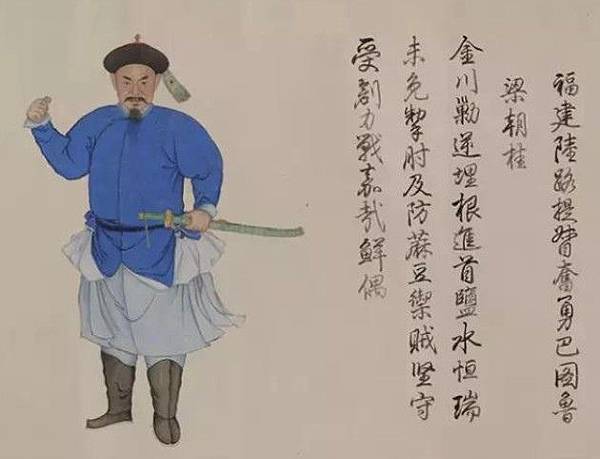 福建陸路提督奮勇巴圖魯
梁朝桂
金川勦逆埋根進首鹽水恒瑞
未免掣肘及防蔴豆禦賊堅守
受創力戰嘉哉鮮偶